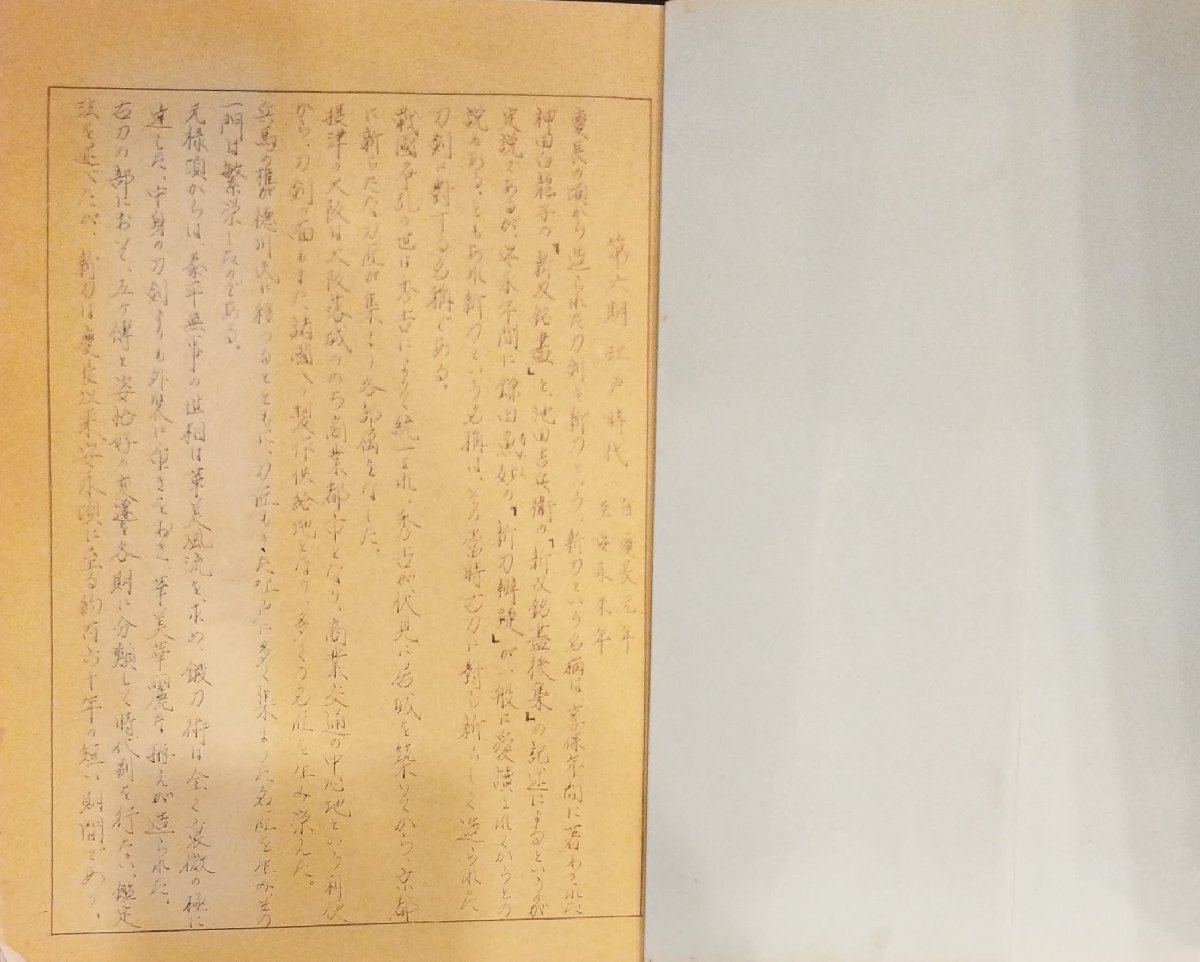 第六期 江戸時代
自 慶長元年
至 安永末年
慶長の頃から造られた刀剣を新刀という、新刀という名称は享保年間に著わされた
神田白龍子の『新刃銘盡』と、池田吉兵衛の『新刃銘盡後集』の記述によるというのが
定説であるが、安永年間に鎌田魚妙の『新刀辨疑』が一般に愛讀されてからとの
説もある。ともあれ新刀という名称は、その當時古刀に對し新らしく造られた
刀剣に對する名稱である。
戰國争乱の世は秀吉によって統一され、秀吉が伏見に居城を築いてから、京都
に新らたな刀匠が集まり各部落をなした。
摂津の大阪は大阪落城ののち商業都市となり、商業交通の中心地という利便
から、刀剣の面もまた諸國への製作供給地となり、多くの名匠を生み栄えた。
兵馬の権が徳川氏に移つるとともに、刀匠もまた江戸に多く集まつた名匠を生み、その
一門は繁栄したのである。
元禄頃からは、泰平無事の世相は華美風流を求め、鍛刀術は全く衰微の極に
達した、中身の刀剣よりも外装に重きをおき、華美華麗な拵えが造られた。
古刀の部において、五ヶ傳と姿恰好の変遷を各期に分類して時代別を行ない、鑑定
法を述べたが、新刀は慶長以来安永頃に至る約百六十年の短い期間であり、